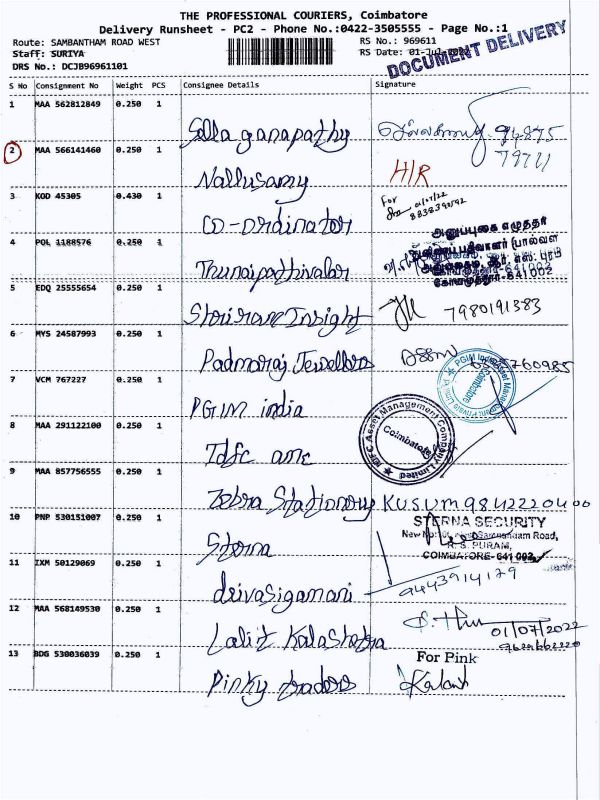 THE PROFESSIONAL COURIERS, Coimbatore
Delivery Runsheet - PC2 - Phone No.:0422-3505555 - Page No.:1
Route: SAMBANTHAM ROAD WEST RS No.: 969611
Staff: SURIYA RS Date: 01-Jul-2022
DOCUMENT DELIVERY
DRS No.: DCJB96961101
S No Consignment No Weight PCS Consignee Details Signature
1 MAA 562812849 0.250 1
Sella ganapathy 94875
79711
2 MAA 566141460 0.250 1
Nallusamy H/R
3 KOD 45305 0.430 1
For 01/07/22
CO-Ordinator
4 POL 1188576 0.250 1
அனுப்புகை எழுத்தர்
Thunaipathivalar
கோயமுத்தூர்-641002
5 EDQ 25555654 0.250 1
Shriram Insight 7980191383
6 MYS 24587993 0.250 1
Padmaraj Jewellers
7 VCM 767227 0.250 1
PGIM india
PGIM India Asset Management Private Limited
Coimbatore
8 MAA 291122100 0.250 1
Idfc amc
IDFC Asset Management Company Limited
Coimbatore
9 MAA 857756555 0.250 1
Zebra Stationery KUSUM 9842220400
10 PNP 530151007 0.250 1
Sterna
STERNA SECURITY
R. S. PURAM,
COIMBATORE-641 002
11 IXM 50129069 0.250 1
deivasigamani 9443914129
12 MAA 568149530 0.250 1
Lalit Kalashetra 01/07/2022
13 BDG 530036039 0.250 1
Pinky traders
For Pink
Kalant